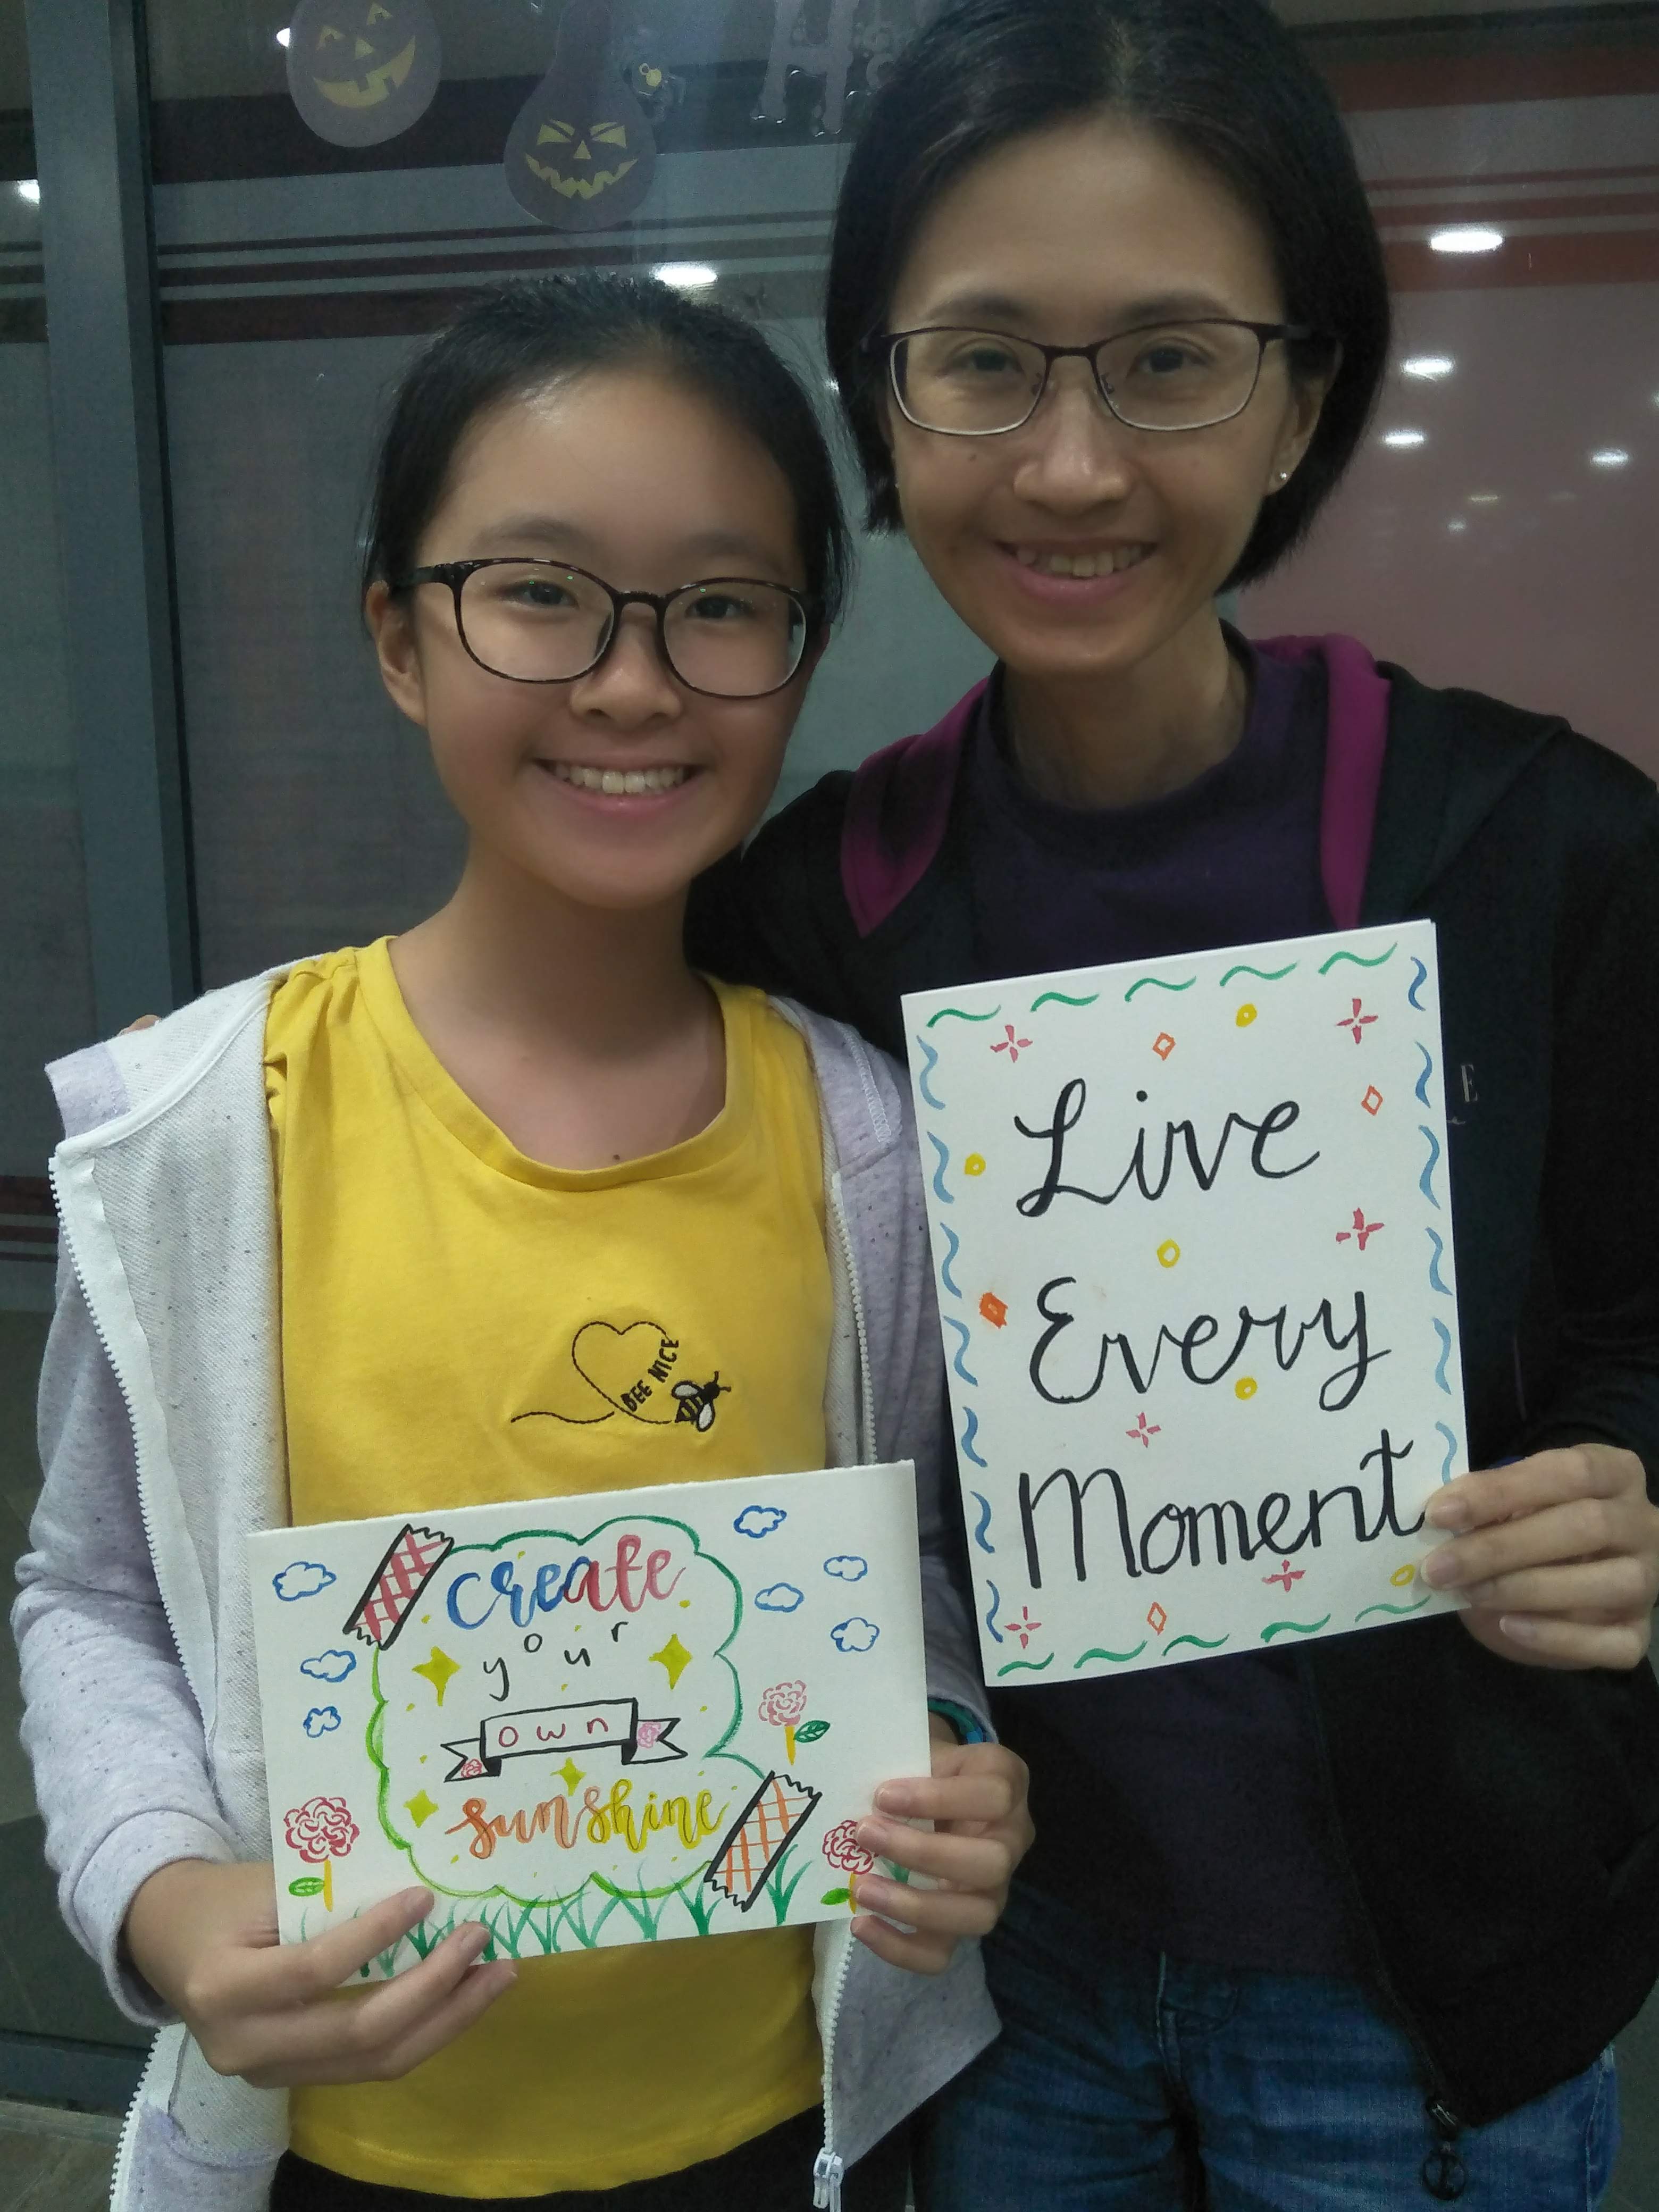 BEE NICE
create
your
own
sunshine
Live
Every
Moment